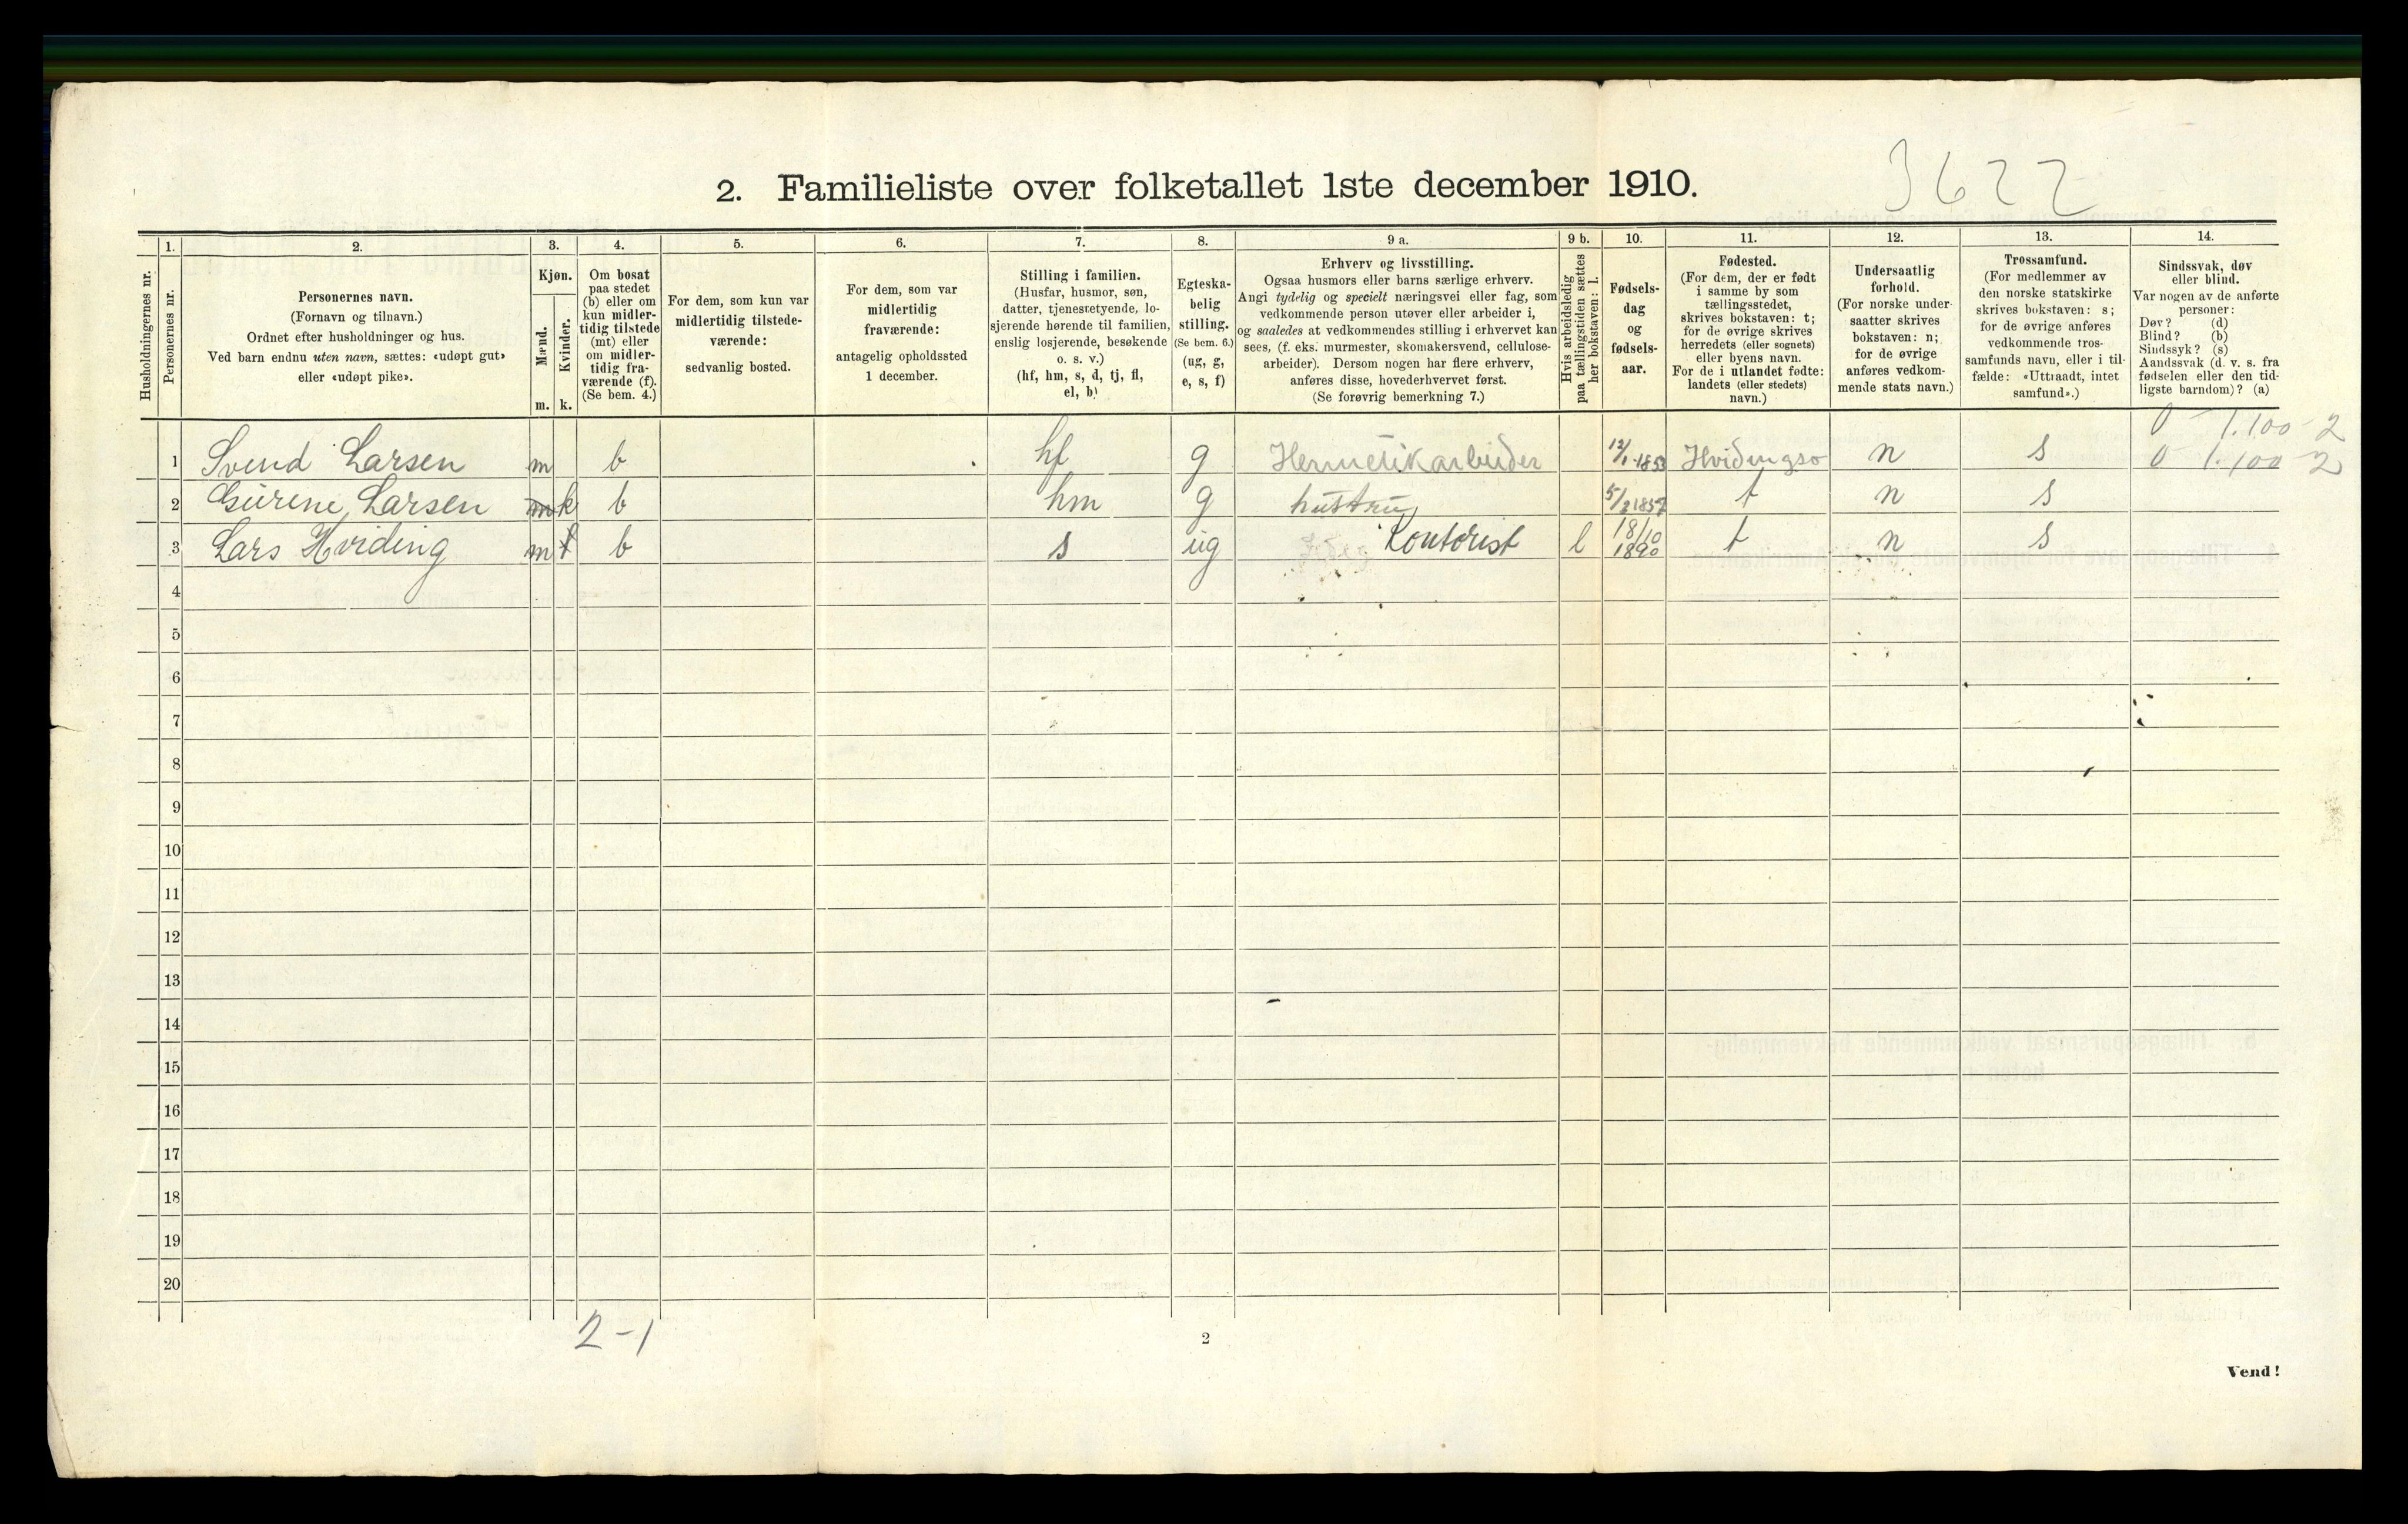 3622
2. Familieliste over folketallet 1ste december 1910.
Husholdningernes nr.
1.
Personernes nr.
2.
Personernes navn.
(Fornavn og tilnavn.)
Ordnet efter husholdninger og hus.
Ved barn endnu uten navn, sættes: «udøpt gut»
eller «udøpt pike».
3.
Kjøn.
Mænd.
m.
Kvinder.
k.
4.
Om bosat
paa stedet
(b) eller om
kun midler-
tidig tilstede
(mt) eller
om midler-
tidig fra-
værende (f).
(Se bem. 4.)
5.
For dem, som kun var
midlertidig tilstede-
værende:
sedvanlig bosted.
6.
For dem, som var
midlertidig
fraværende:
antagelig opholdssted
1 december.
7.
Stilling i familien.
(Husfar, husmor, søn,
datter, tjenestetyende, lo-
sjerende hørende til familien,
enslig losjerende, besøkende
o. s. v.)
(hf, hm, s, d, tj, fl,
el, b)
8.
Egteska-
belig
stilling.
(Se bem. 6.)
(ug, g,
e, s, f)
9 a.
Erhverv og livsstilling.
Ogsaa husmors eller barns særlige erhverv.
Angi tydelig og specielt næringsvei eller fag, som
vedkommende person utøver eller arbeider i,
og saaledes at vedkommendes stilling i erhvervet kan
sees, (f. eks. murmester, skomakersvend, cellulose-
arbeider). Dersom nogen har flere erhverv,
anføres disse, hovederhvervet først.
(Se forøvrig bemerkning 7.)
9 b.
Hvis arbeidsledig
paa tællingstiden sættes
her bokstaven: l.
10.
Fødsels-
dag
og
fødsels-
aar.
11.
Fødested.
(For dem, der er født
i samme by som
tællingsstedet,
skrives bokstaven: t;
for de øvrige skrives
herredets (eller sognets)
eller byens navn.
For de i utlandet fødte:
landets (eller stedets)
navn.)
12.
Undersaatlig
forhold.
(For norske under-
saatter skrives
bokstaven: n;
for de øvrige
anføres vedkom-
mende stats navn.)
13.
Trossamfund.
(For medlemmer av
den norske statskirke
skrives bokstaven: s;
for de øvrige anføres
vedkommende tros-
samfunds navn, eller i til-
fælde: «Uttraadt, intet
samfund».)
14.
Sindssvak, døv
eller blind.
Var nogen av de anførte
personer:
Døv? (d)
Blind? (b)
Sindssyk? (s)
Aandssvak (d. v. s. fra
fødselen eller den tid-
ligste barndom)? (a)
0 - 1.100 - 2
1 Svend Larsen m b hf g Hermetikarbeider 12/1-1853 Hvidingsø n s 0 1.100 - 2
2 Gurene Larsen m k b hm g hustru 5/2 1857 t n s
3 Lars Hviding m b s ug Kontorist l 18/10 1890 t n s
4
5
6
7
8
9
10
11
12
13
14
15
16
17
18
19
20
2-1
2
Vend!